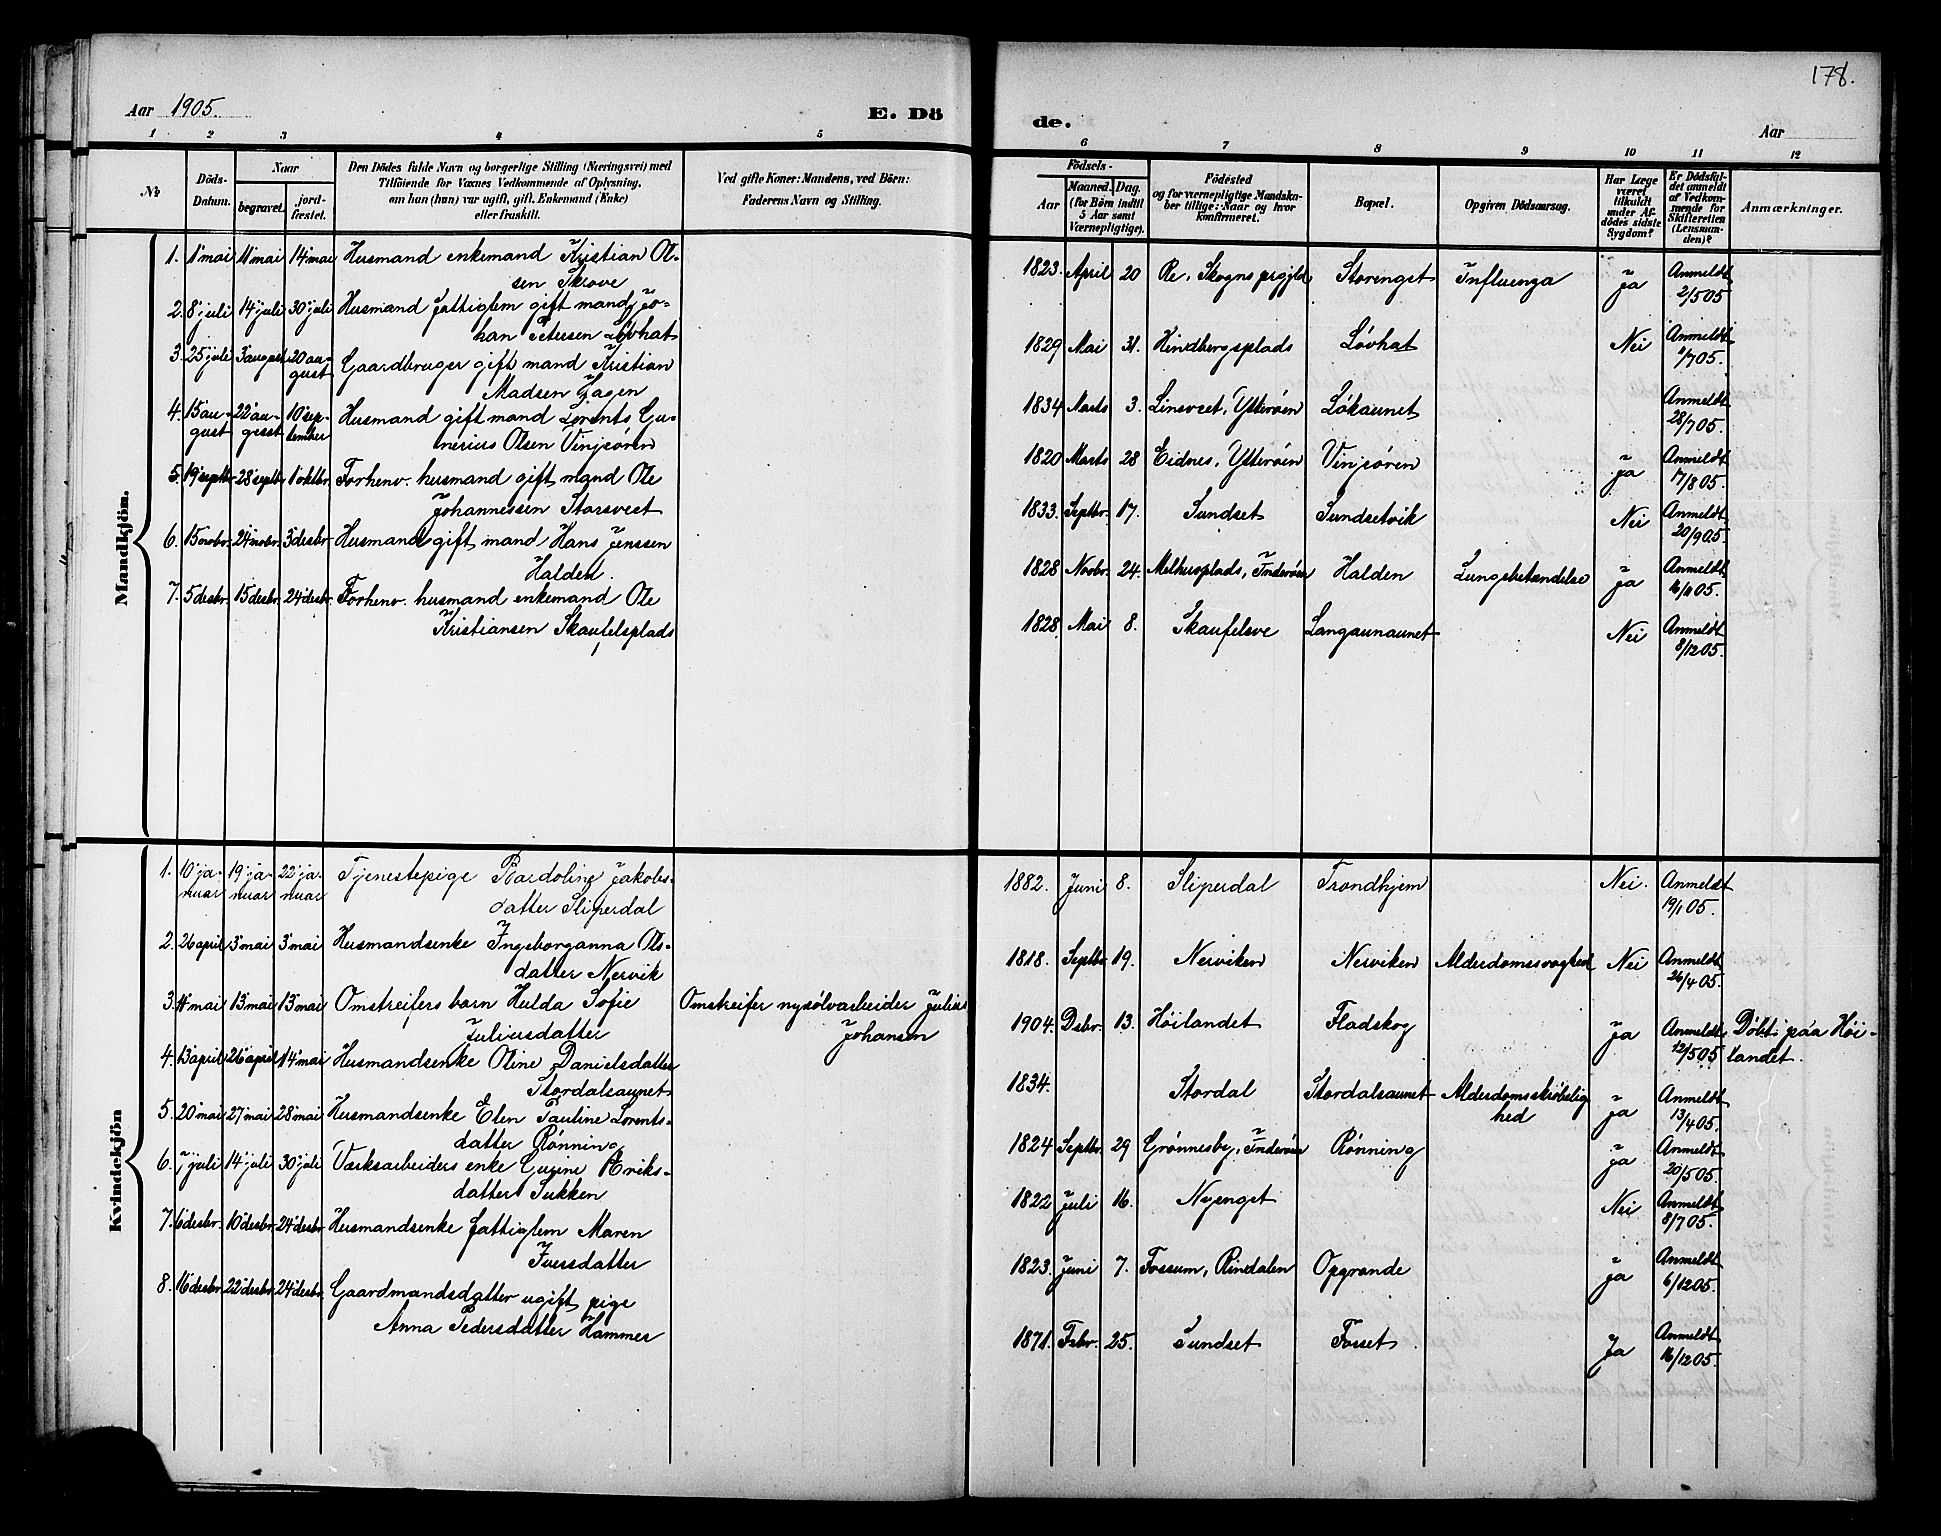 178.
Aar 1905.
E. Dö
de.
Aar
1 2 3 4 5
6 7 8 9 10 11 12
No
Döds-
Datum.
Naar
begravet.
jord-
fæstet.
Den Dödes fulde Navn og borgerlige Stilling (Næringsvei) med
Tilföiende for Voxnes Vedkommende af Oplysning,
om han (hun) var ugift, gift, Enkemand (Enke)
eller fraskilt.
Ved gifte Koner: Mandens, ved Börn:
Faderens Navn og Stilling.
Födsels-
Aar
Maaned. Dag.
(for Börn indtil
5 Aar samt
Værnepligtige).
Födested
og for værnepligtige Mandskа-
ber tillige: Naar og hvor
konfirmeret.
Bopæl.
Opgiven Dödsaarsag.
Har Læge
været
tilkaldt
under Af-
dödes sidste
Sygdom?
Er Dödsfal-
det anmeldt
af Vedkom-
mende for
Skifteretten
(Lensman-
den)?
Anmærkninger.
Mandkjön.
1. 1' mai 11' mai 14' mai Husmand enkemand Kristian Ol-
sen Skrove
1823. April 20 Re, Skogns prgjld Storenget Influenza Ja Anmeldt
2/5 05
2. 8' juli 14' juli 30' juli Husmand fattiglem gift mand Jo-
han Petersen Lövhat
1829 Mai 31. Hindbergsplads Lövhat Nei Anmeldt
8/7 05.
3. 25' juli 3' august 20' au-
gust Gaardbruger gift mand Kristian
Madsen Hagen
1834 Marts 3. Linsveet, Ytterøen Lökaunet Anmeldt
28/7 05.
4. 15' au-
gust 22' au-
gust 10' sep-
tember Husmand gift mand Lorents Gu-
nerius Olsen Vinjsören
1820 Marts 28 Eidnes, Ytterøen Vinjsören Ja Anmeldt
17/8 05.
5. 19' septbr. 28' septb. 1' oktbr. Forhenv. husmand gift mand Ole
Johannessen Storsveet
1833. Septbr. 17. Sundset Sundsetvik Nei Anmeldt
20/9 05.
6. 15' novbr. 24' novbr. 3' desbr. Husmand gift mand Hans Jenssen
Halden.
1828 Novbr. 24. Melhusplads, Inderøen Halden Lungebetændelse Ja Anmeldt
16/11 05.
7. 5' desbr. 15' desbr. 24' desbr. Forhenv. husmand enkemand Ole
Kristiansen Skaufelsplads
1828. Mai 8. Skaufelsve Langaunaunet Nei Anmeldt
8/12 05.
Kvindekjön
1. 10' ja-
nuar 19' ja-
nuar 22' ja-
nuar Tjenestepige Bardoline Jakobs-
datter Sliperdal
1882. Juni 8. Sliperdal Trondhjem Nei. Anmeldt
19/1 05.
2. 26' april 3' mai 3' mai Husmandsenke Ingeborganna Ols-
datter Nervik
1818. Septbr. 19. Nerviken Nerviken Alderdomssvaghed Nei Anmeldt
26/4 05.
3. 11' mai 13' mai 13' mai Omstreifers barn Hulda Sofie
Juliusdatter Omstreifer nysölvarbeider Julius
Johansen
1904. Dsbr. 13. Höilandet Fladskog Ja Anmeldt
12/5 05 Döbt paa Höi-
landet.
4. 13' april 26' april 14' mai Husmandsenke Oline Danielsdatter
Stordalsaunet
1834. Stordal Stordalsaunet Alderdomsskröbelig
hed Ja Anmeldt
13/4 05.
5. 20' mai 27' mai 28' mai Husmandsenke Elen Pauline Lorents-
datter Rönning
1824 Septbr. 29 Grönnesby, Inderøen Rönning Ja Anmeldt
20/5 05.
6. 7' juli 14' juli 30' juli Værksarbeiders enke Gurine Eriks-
datter Sukken
1822 Juli 16. Nyenget Nei Anmeldt
8/7 05.
7. 6' desbr. 10' desbr. 24' desbr. Husmandsenke fattiglem Maren
Iversdatter
1823. Juni 7. Fossum, Rindalen Opgrande Ja Anmeldt
6/12 05.
8. 16' desbr. 22' desbr. 24' desbr. Gaardmandsdatter ugift pige
Anna Pedersdatter Hammer
1871. Fsbr. 25. Sundset Fosset Ja Anmeldt
16/12 05.